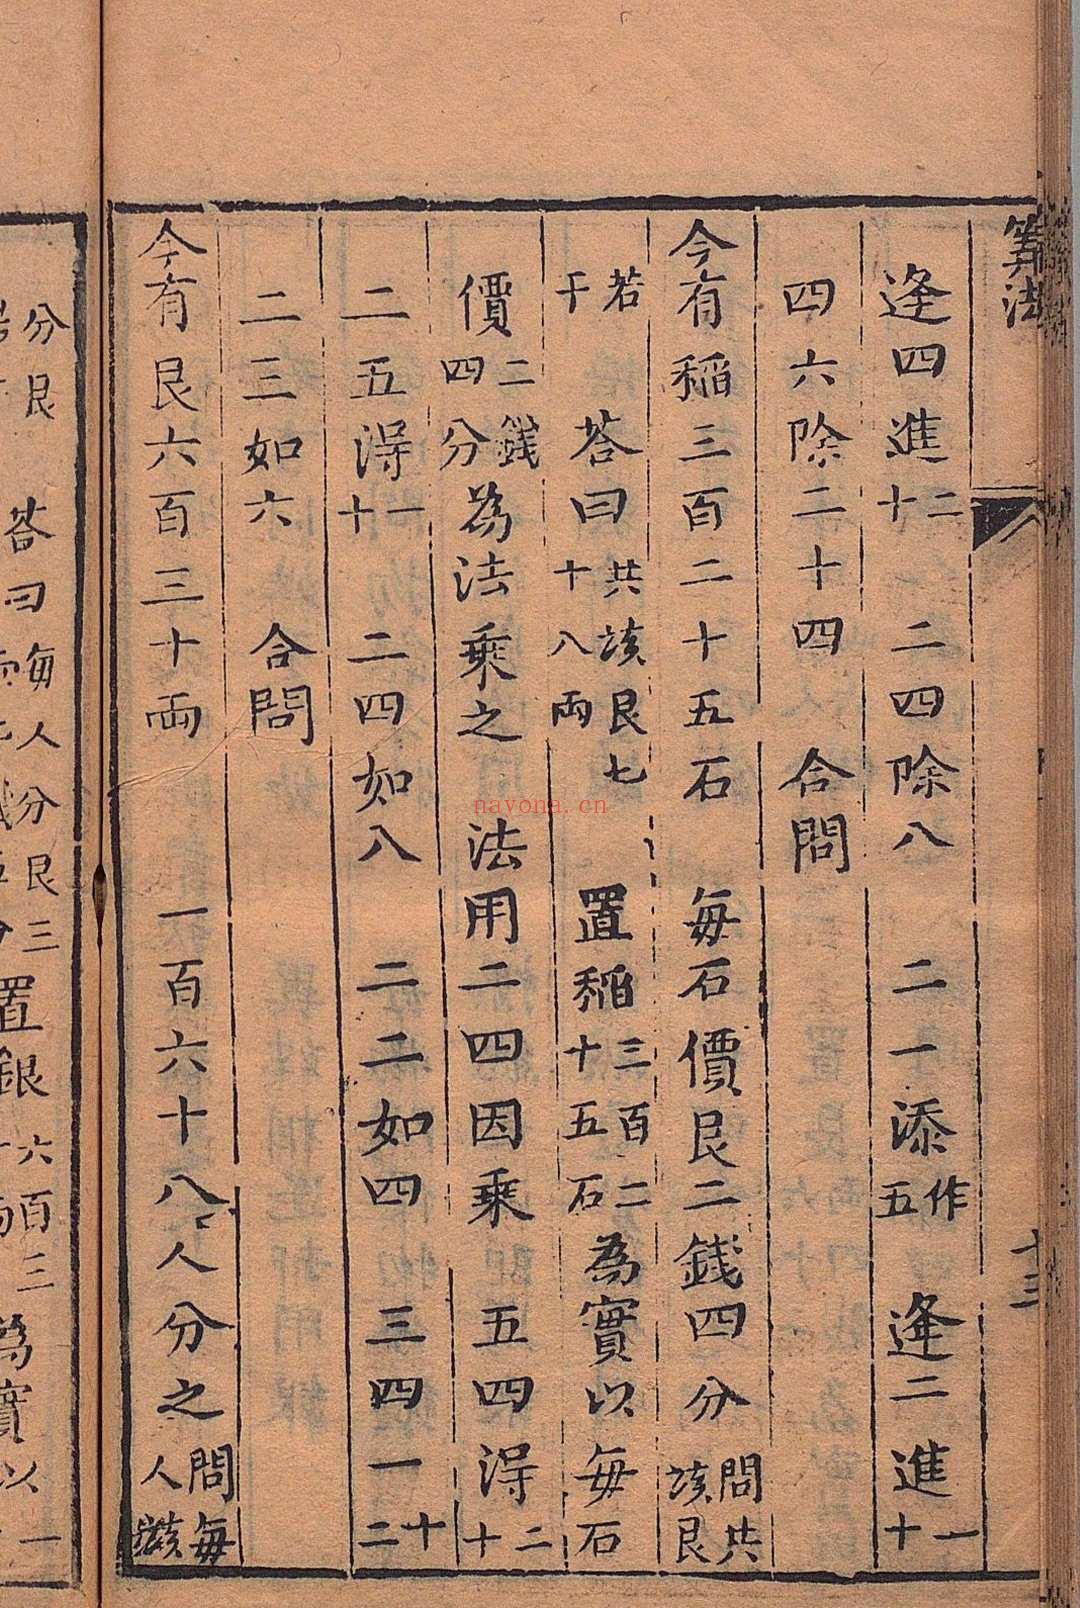 算法
十三
逢四進二十 二四除八 二一添作五 逢二進一十
四六除二十四 合問
今有稲三百二十五石 每石價艮二錢四分問共該艮
若干 荅曰共該艮七十八兩 置稲三百二十五石為實以每石
價二錢四分為法乘之 法用二四因乘 五四得二十
二五得一十 二四如八 二二如四 三四一十二
二三如六 合問
今有艮六百三十兩 一百六十八人分之問每人該
分艮 荅曰每人分艮三 置銀六百三 為實以一
nayona.cn